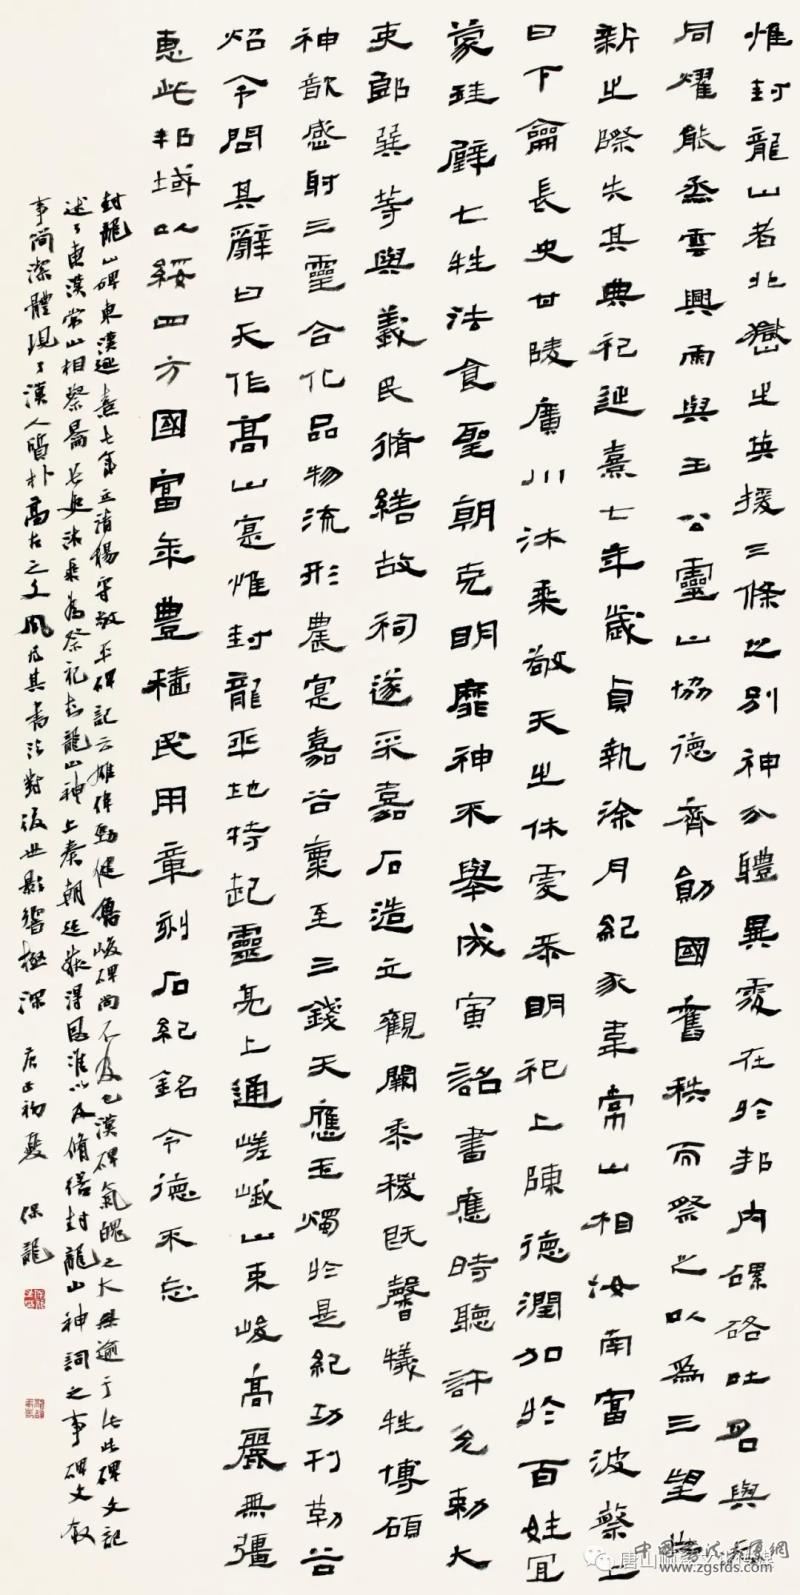 惟封龍山者北嶽之英援三條之別神分體異處在於邦內磥硌吐名與
同燿能烝雲興雨與王公靈山協德齊勛國舊秩而祭之以為三望
新之際失其典祀延熹七年歲貞執涂月紀豕韋常山相汝南富波蔡上
曰下龠長史甘陵廣川沐乘敬天之休虔恭明祀上陳德潤加於百姓宜
蒙珪璧七牲法食聖朝克明靡神不舉戊寅詔書應時聽許允勅大
吏郎巽等與義民脩繕故祠遂采嘉石造立觀闕黍稷既馨犧牲博碩
神歆感射三靈合化品物流形農寔嘉谷粟至三錢天應玉燭於是紀功刊勒谷
炤令問其辭曰天作高山寔惟封龍平地特起靈亮上通嵯峨山東峻高麗無彊
惠此邦域以綏四方國富年豐穡民用章刻石紀銘令德不忘
封龍山碑東漢延熹七年立清楊守敬平碑記云雄偉勁健魯峻碑尚不及也漢碑氣魄之大無逾于此此碑文記
述了東漢常山相蔡龠長史沐乘為祭祀封龍山神上奏朝廷獲得恩准以及脩繕封龍山神詞之事碑文叙
事簡潔體現了漢人質朴高古之文風及其書法對後世影響極深 初夏 保龍
中國書法展網
www.zgsfds.com